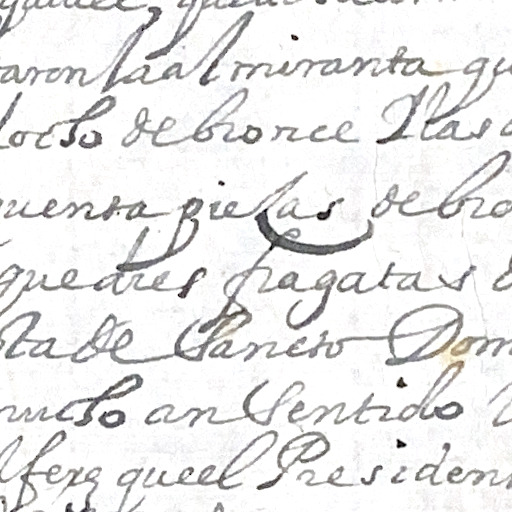 aron la almiranta qu
ocho de bronce Y las
quenta pieças de bro
que dres fragatas d
ta de Sancto Dom
mucho an Sentido
lferez que el Presiden